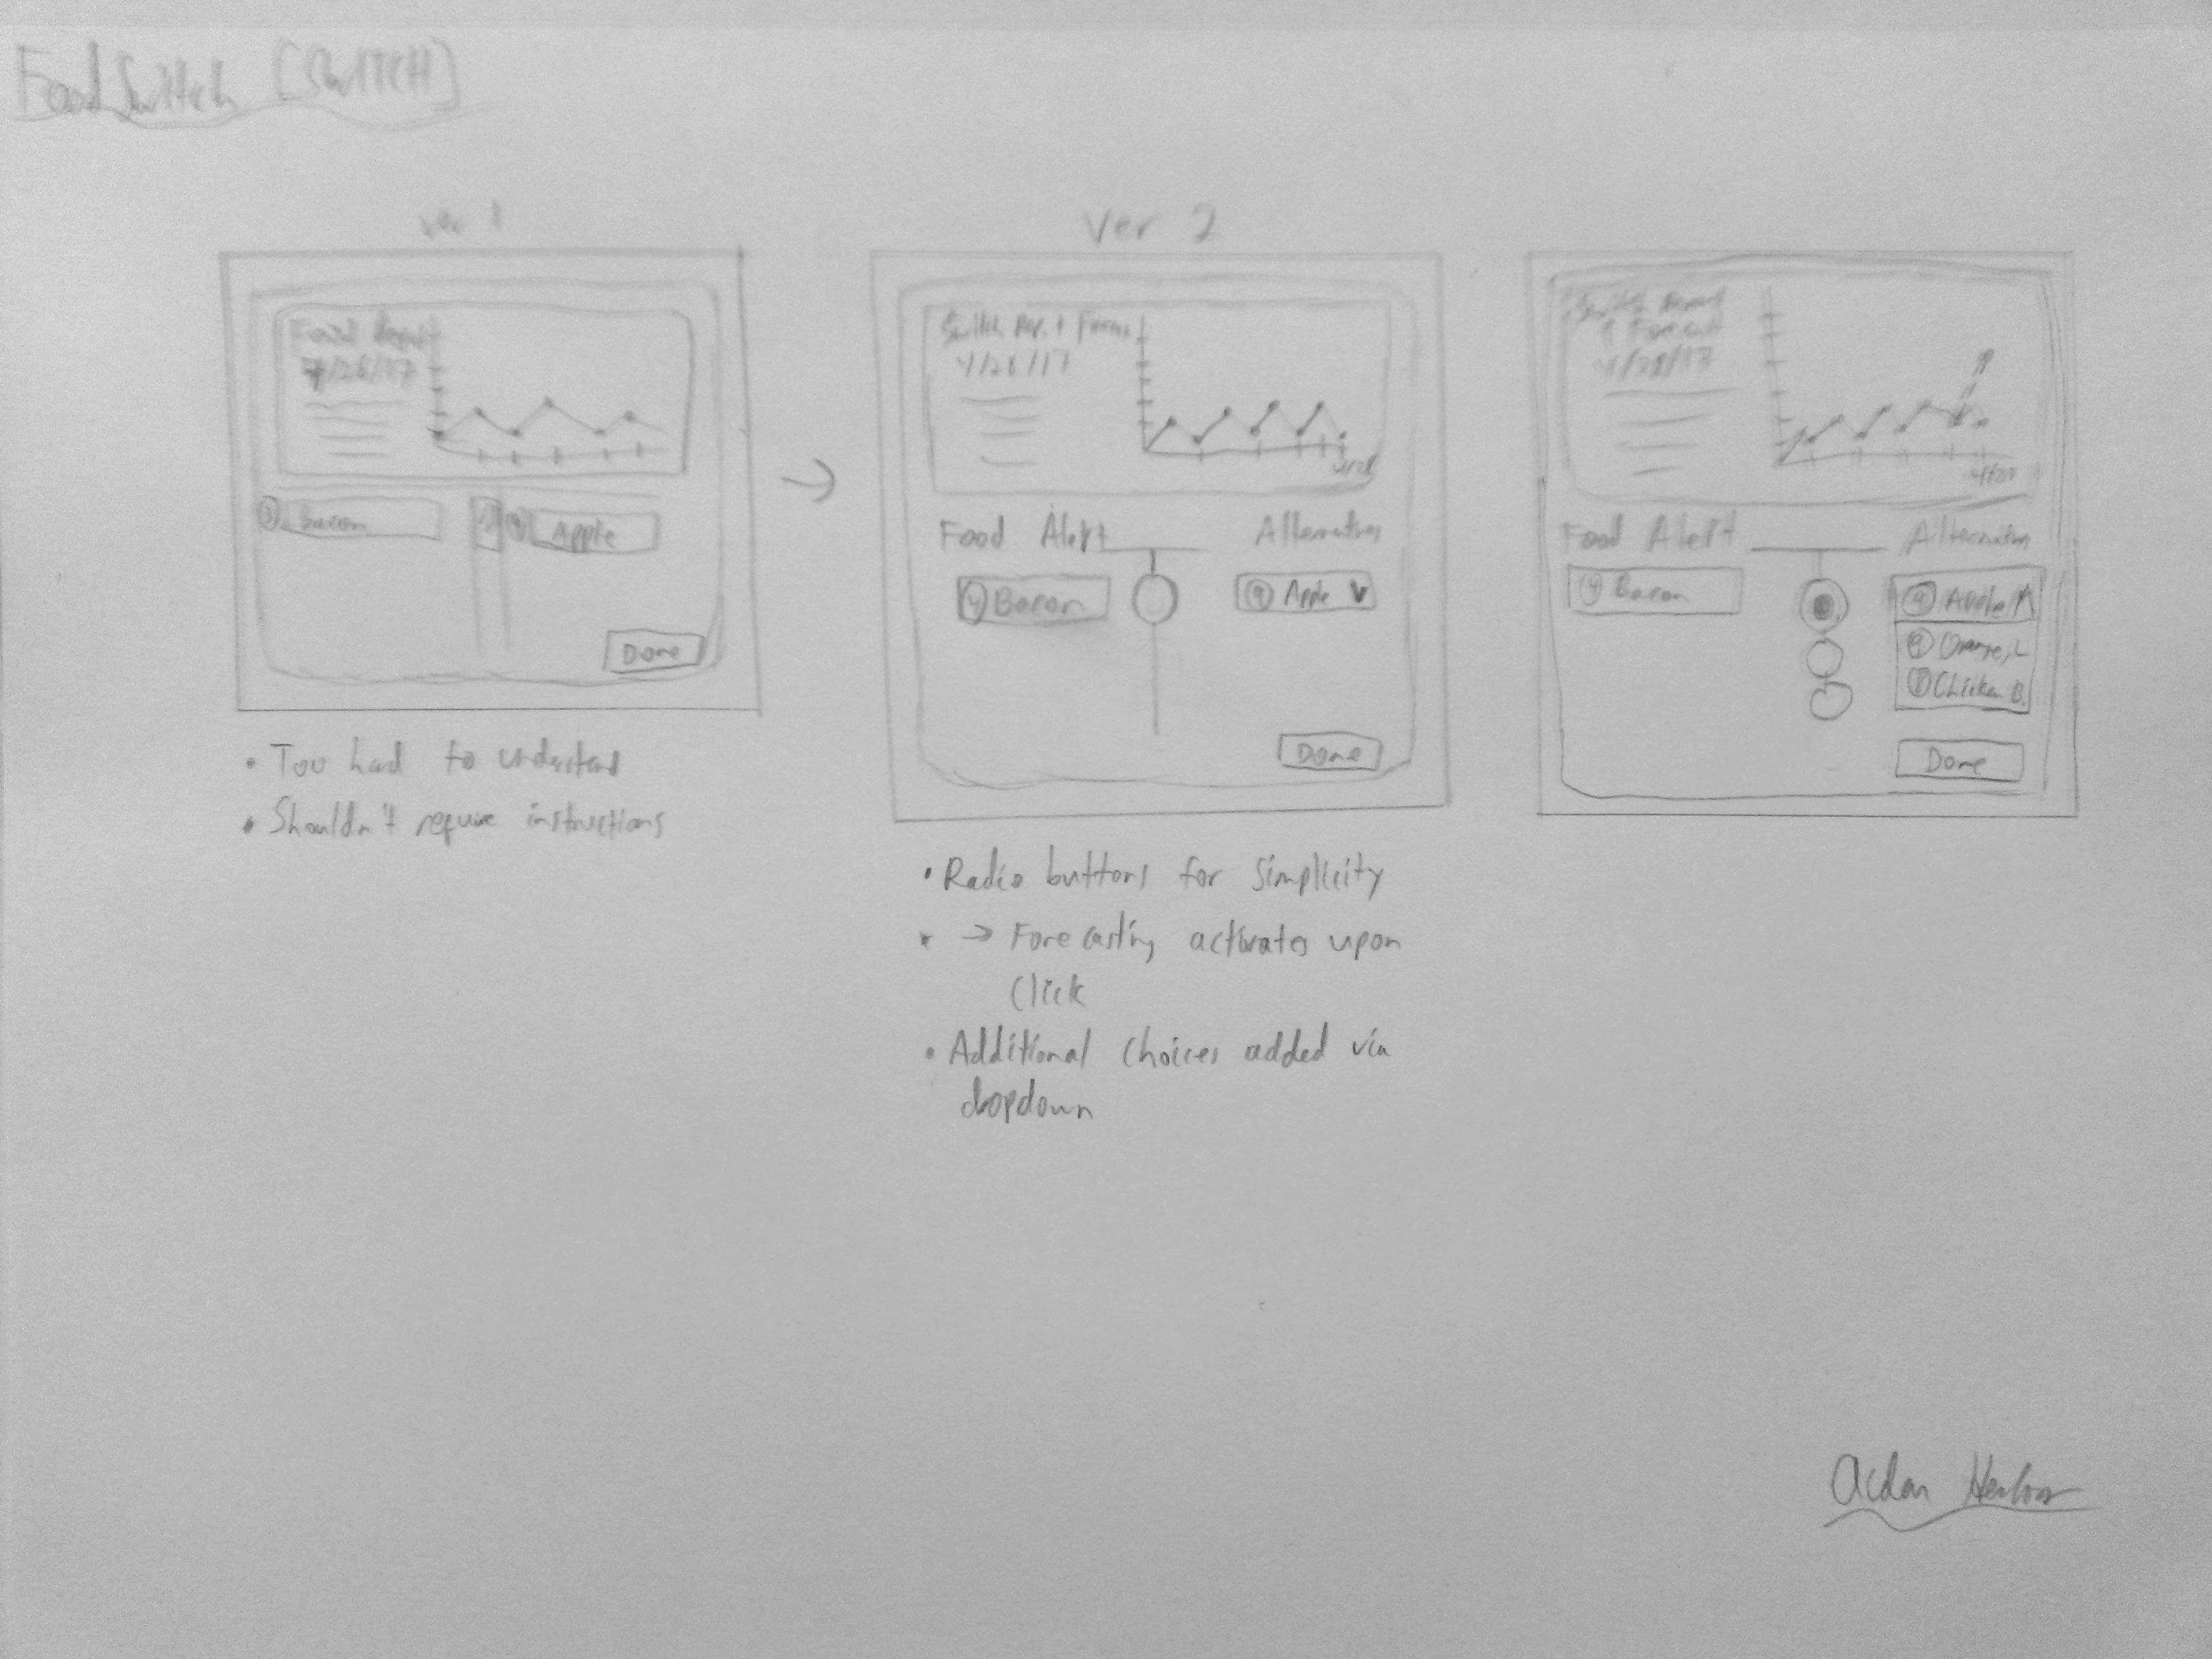 Food Switch [SWITCH]
ver 1
Food Report
4/28/17
Bacon
Apple
Done
• Too hard to understand
• Shouldn't require instructions
Ver 2
Switch Rep. +
4/28/17
4/28
Food Alert
Alternatives
4 Bacon
9 Apple
Done
• Radio buttons for simplicity
→ Forecasting activates upon
Click
• Additional choices added via
dropdown
Switch Report
& Forecast
4/28/17
4/28
Food Alert
Alternatives
4 Bacon
9 Apple
9 Orange, L
8 Chicken B.
Done